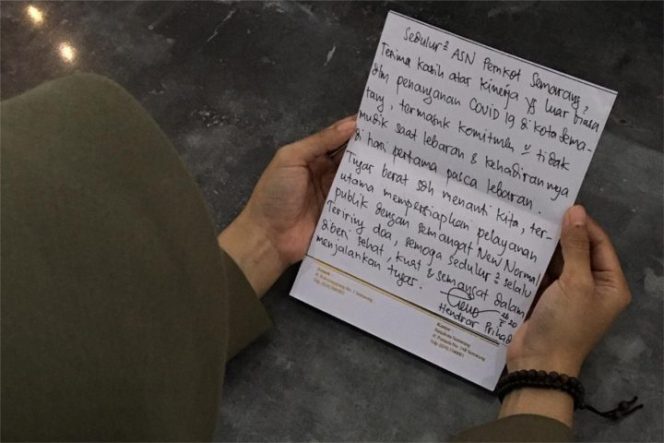 Sedulur² ASN Pemkot Semarang,
Terima kasih atas kinerja yg luar biasa
dlm penanganan COVID 19 di kota Sema-
rang, termasuk komitmen utk tidak
mudik saat lebaran & kehadirannya
di hari pertama pasca lebaran.
Tugas berat sdh menanti kita, ter-
utama mempersiapkan pelayanan
publik dengan semangat New Normal
Teriring doa, semoga sedulur² selalu
diberi sehat, kuat & semangat dalam
menjalankan tugas.
Hendrar Prihadi
Kantor :